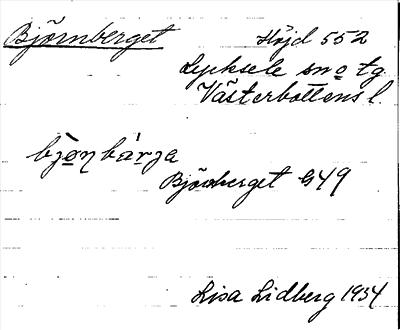 Björnberget Höjd 552
Lycksele sn o tg
Västerbottens l.
bjo̱n bárja
Björnberget G49
Lisa Lidberg 1934